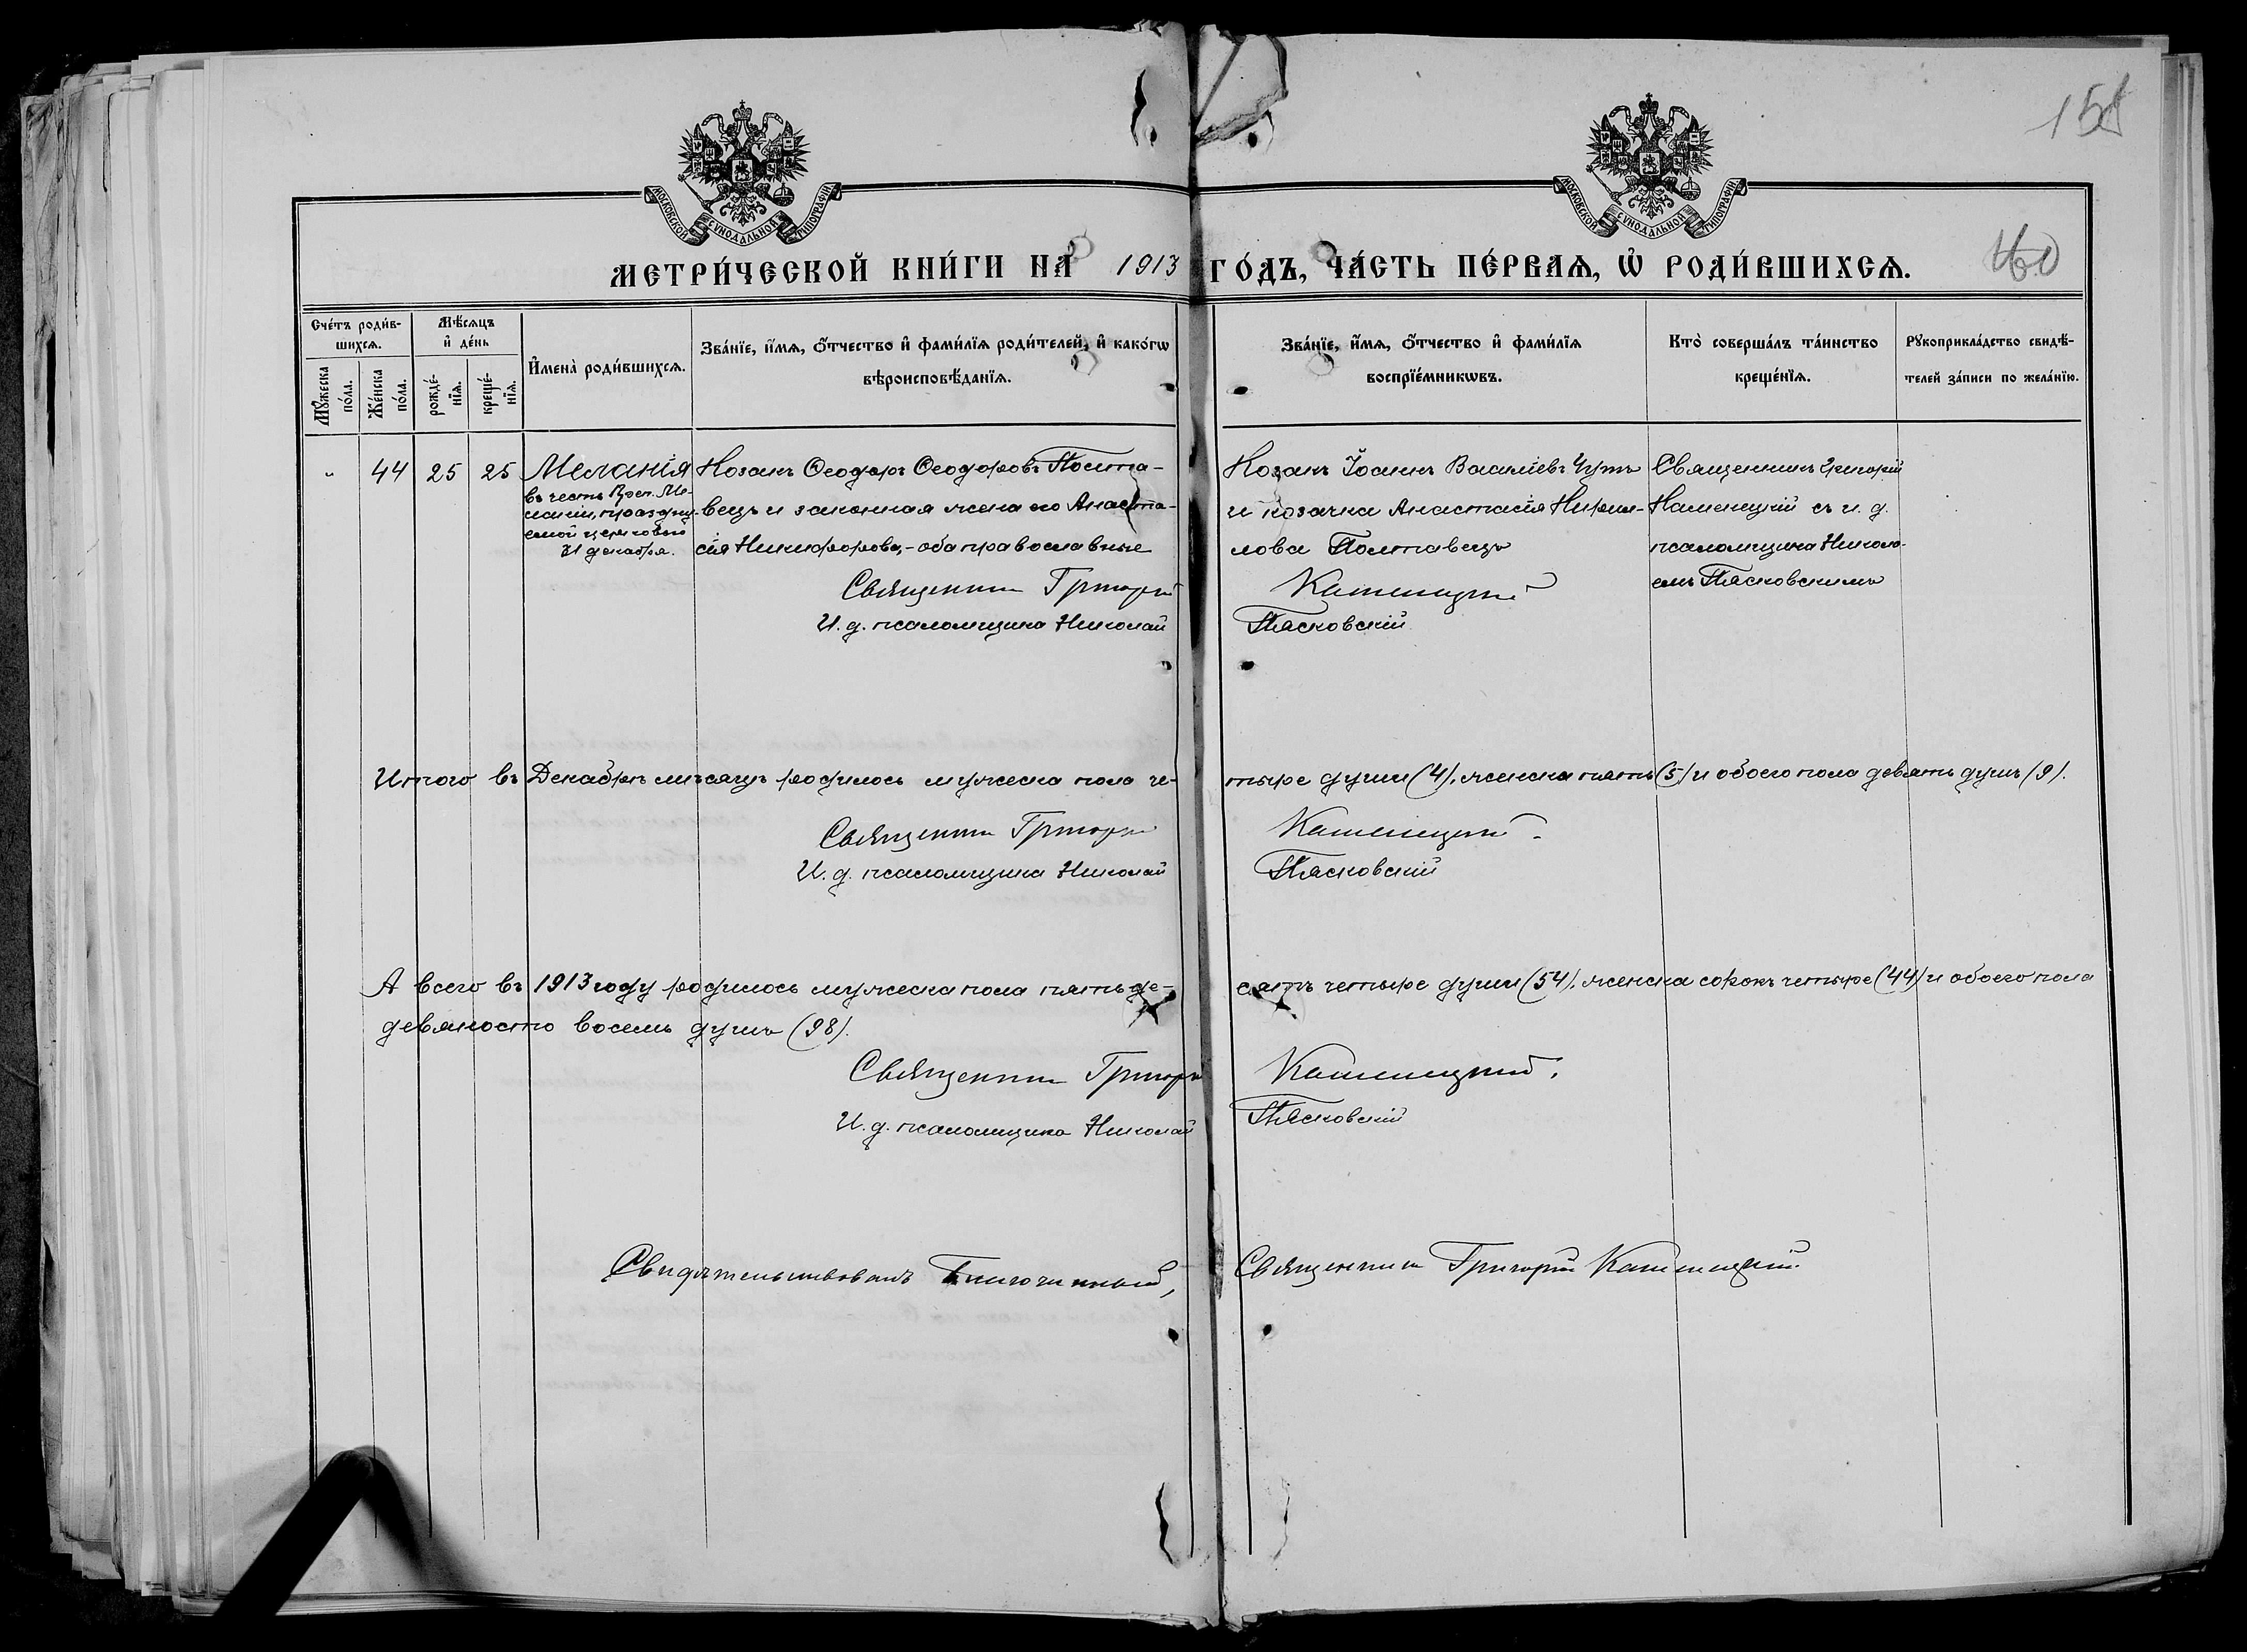 158
МОСКОВСКОЙ СѴНОДАЛЬНОЙ ТИПОГРАФІИ
МОСКОВСКОЙ СѴНОДАЛЬНОЙ ТИПОГРАФІИ
МЕТРИ́ЧЕСКОЙ КНИ́ГИ НА̀ 1913 ГО́ДЪ, ЧА́СТЬ ПЕ́РВАѦ, Ѡ҆ РОДИ́ВШИХСѦ.
Сче́тъ роди́в-
шихсѧ.
Мꙋ́жеска по́ла.
Же́нска по́ла.
Мѣ́сѧцъ
и҆ де́нь
рожде́-
нїѧ.
креще́-
нїѧ.
И҆мена̀ роди́вшихсѧ.
Зва́нїе, и҆́мѧ, ѻ҆́тчество и҆ фами́лїѧ роди́телей, и҆ како́гѡ
вѣроисповѣ́данїѧ.
Зва́нїе, и҆́мѧ, ѻ҆́тчество и҆ фами́лїѧ
воспрїе́мникѡвъ.
Кто̀ соверша́лъ та́инство
креще́нїѧ.
Рꙋкоприкла́дство свидѣ́-
телей за́писи по жела́нїю.
44 25 25
Меланія
въ честь Преп. Ме-
ланіи, праздну-
емой церковью
31 декабря.
Козакъ Ѳеодоръ Ѳеодоровъ Полта-
вецъ и законная жена его Анаста-
сія Никифорова,-оба православные
Козакъ Іоаннъ Василіевъ Чутъ
и козачка Анастасія Кирил-
лова Полтавецъ
Священникъ Григорій
Каменецкій съ и. д.
псаломщика Никола-
емъ Плясковскимъ
Священникъ Григорій Каменецкій
И. д. псаломщика Николай Плясковскій
Итого въ Декабрѣ мѣсяцѣ родилось мужеска пола че- тыре души (4), женска пять (5) и обоего пола девять душъ (9).
Священникъ Григорій Каменецкій
И. д. псаломщика Николай Плясковскій
А всего въ 1913 году родилось мужеска пола пятьде- сятъ четыре души (54), женска сорокъ четыре (44) и обоего пола
девяносто восемь душъ (98).
Священникъ Григорій Каменецкій.
И. д. псаломщика Николай Плясковскій
Свидѣтельствовалъ Благочинный, Священникъ Григорій Каменецкій.